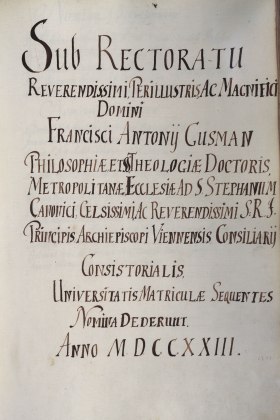 Sub Rectoratu
Reverendissimi, Perillustris, Ac Magnifici
Domini
Francisci Antonij Gusman
Philosophiæ et SS Theologiæ Doctoris,
Metropolitanæ Ecclesiæ Ad S Stephanum
Canonici, Celsissimi, Ac Reverendissimi S.R.I.
Principis Archiepiscopi Viennensis Consiliarij
Consistorialis,
Universitatis Matriculæ Sequentes
Nomina Dederunt.
Anno MDCCXXIII.